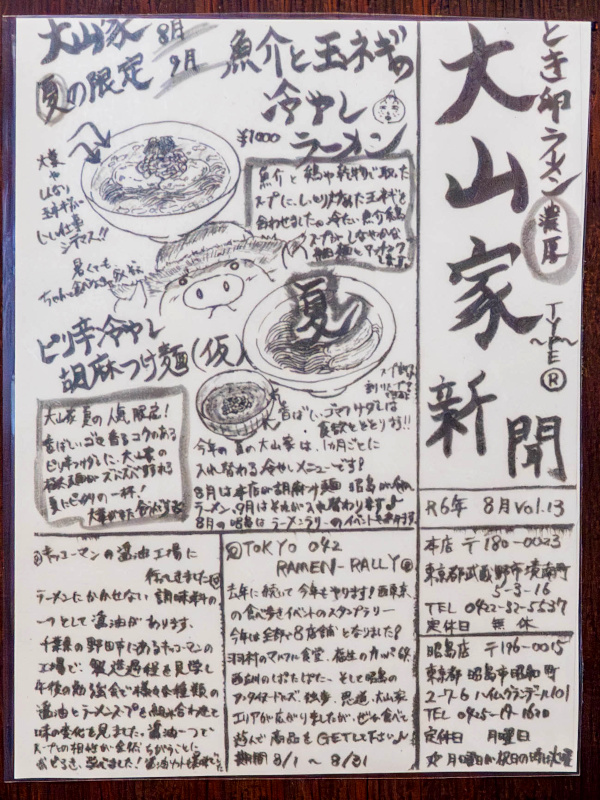 とき卵ラーメン
濃厚
TYPE®
大山家
新聞
R6年 8月 Vol.13
大山家 8月
9月
夏の限定
魚介と玉ネギの
冷やし
ラーメン
¥1000
魚介と鶏や乾物で取った
スープに、しっとり炒めた玉ネギを
合わせました。冷たい魚介鶏
スープがしなやかな
大葉
や
玉ネギが
いい仕事
シテマス!!
暑くても
ピリ辛冷やし
胡麻つけ麺(仮)
夏
香ばしいゴマつけダレは
食欲をそそる!!
大山家 夏の人気限定!
香ばしいゴマ香るコクのある
ピリ辛つけダレに、大山家の
夏にピッタリの一杯!
今年の夏の大山家は、1か月ごとに
入れ替わる冷やしメニューです!
8月は本店が胡麻つけ麺 昭島が冷や
ラーメン、9月はそれが入れ替わります♪
8月の昭島はラーメンラリーのイベントもあります。
キッコーマンの醤油工場に
行ってきました
ラーメンにかかせない 調味料の
一つとして醤油があります。
千葉県の野田市にあるキッコーマンの
工場で、製造過程を見学し
午後の勉強会で様々な種類の
醤油とラーメンスープを組み合わせて
味の変化を見ました。醤油一つで
スープとの相性が全然ちがうことに
おどろき、学べました!
TOKYO 042
RAMEN-RALLY
去年に続いて今年もやります!西東京
の食べ歩きイベントのスタンプラリー
今年は全部で8店舗となりました!
羽村のマルフク食堂、福生の
西立川のぱたぱた、そして昭島の
大山家
エリアが広がりましたが、ぜひ食べて
遊んで商品をGETして下さい♪
期間 8/1 ~ 8/31
本店 〒180-0023
東京都武蔵野市境南町
5-3-16
TEL 0422-32-5537
定休日 無休
昭島店 〒196-0015
東京都 昭島市昭和町
2-7-6 ハイムグランデール101
定休日 月曜日
月曜日が祝日の時は火曜